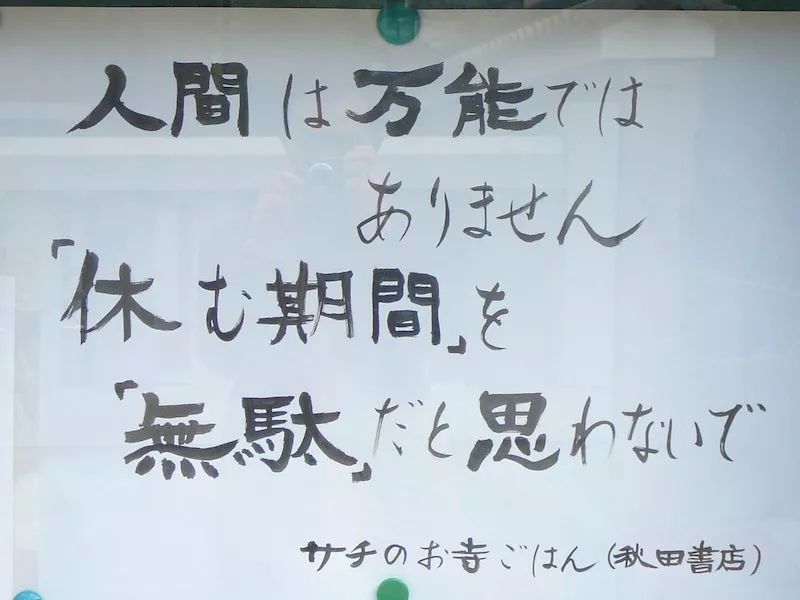 人間は万能では
ありません
「休む期間」を
「無駄」だと思わないで
サチのお寺ごはん(秋田書店)